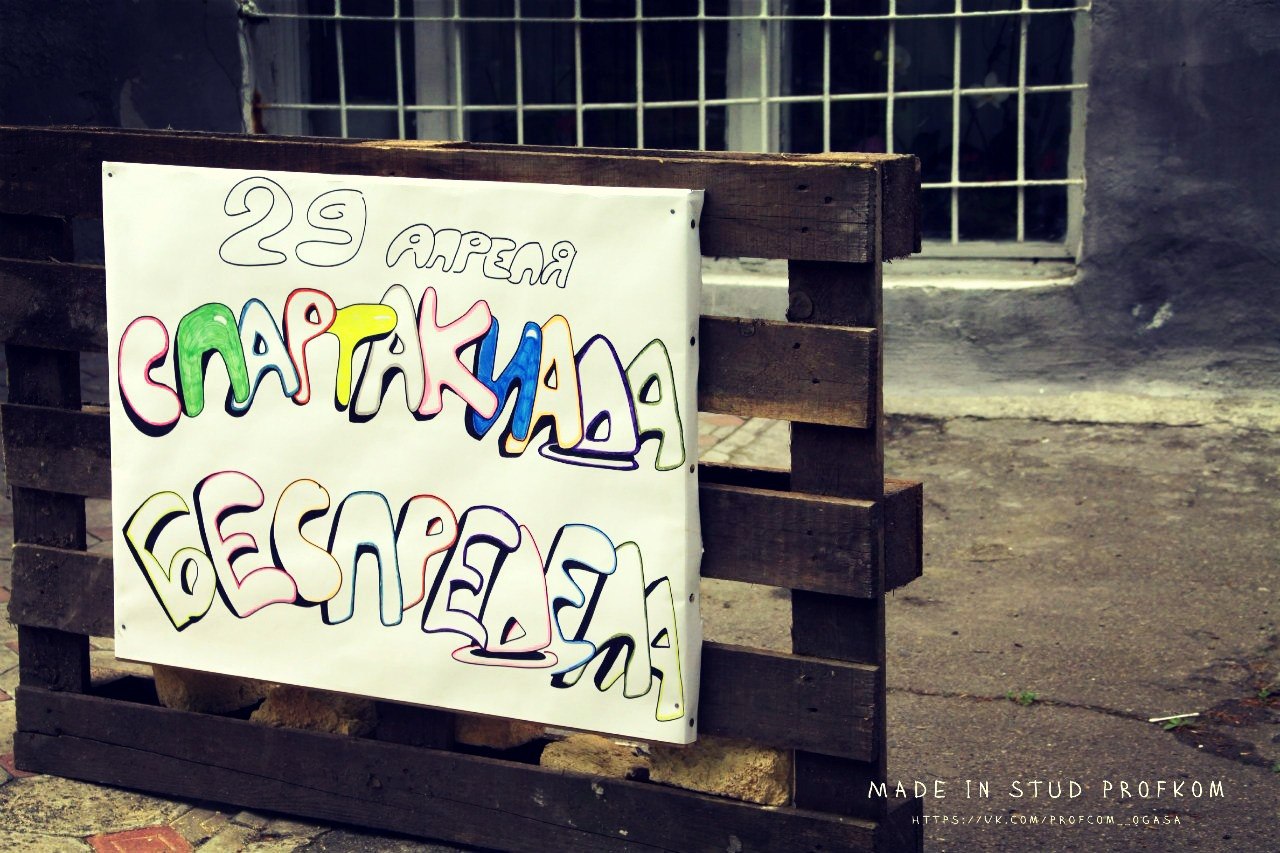 29 апреля
СПАРТАКИАДА
БЕСПРЕДЕЛА
MADE IN STUD PROFKOM
HTTPS://VK.COM/PROFCOM__OGASA